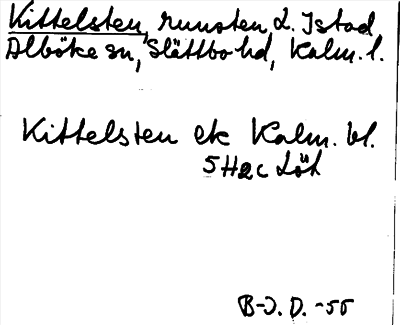 Kittelsten, runsten L. Istad
Alböke sn, Slättbo hd, Kalm. l.
Kittelsten ek Kalm. bl.
5H2c Löt
B-J. D. -55